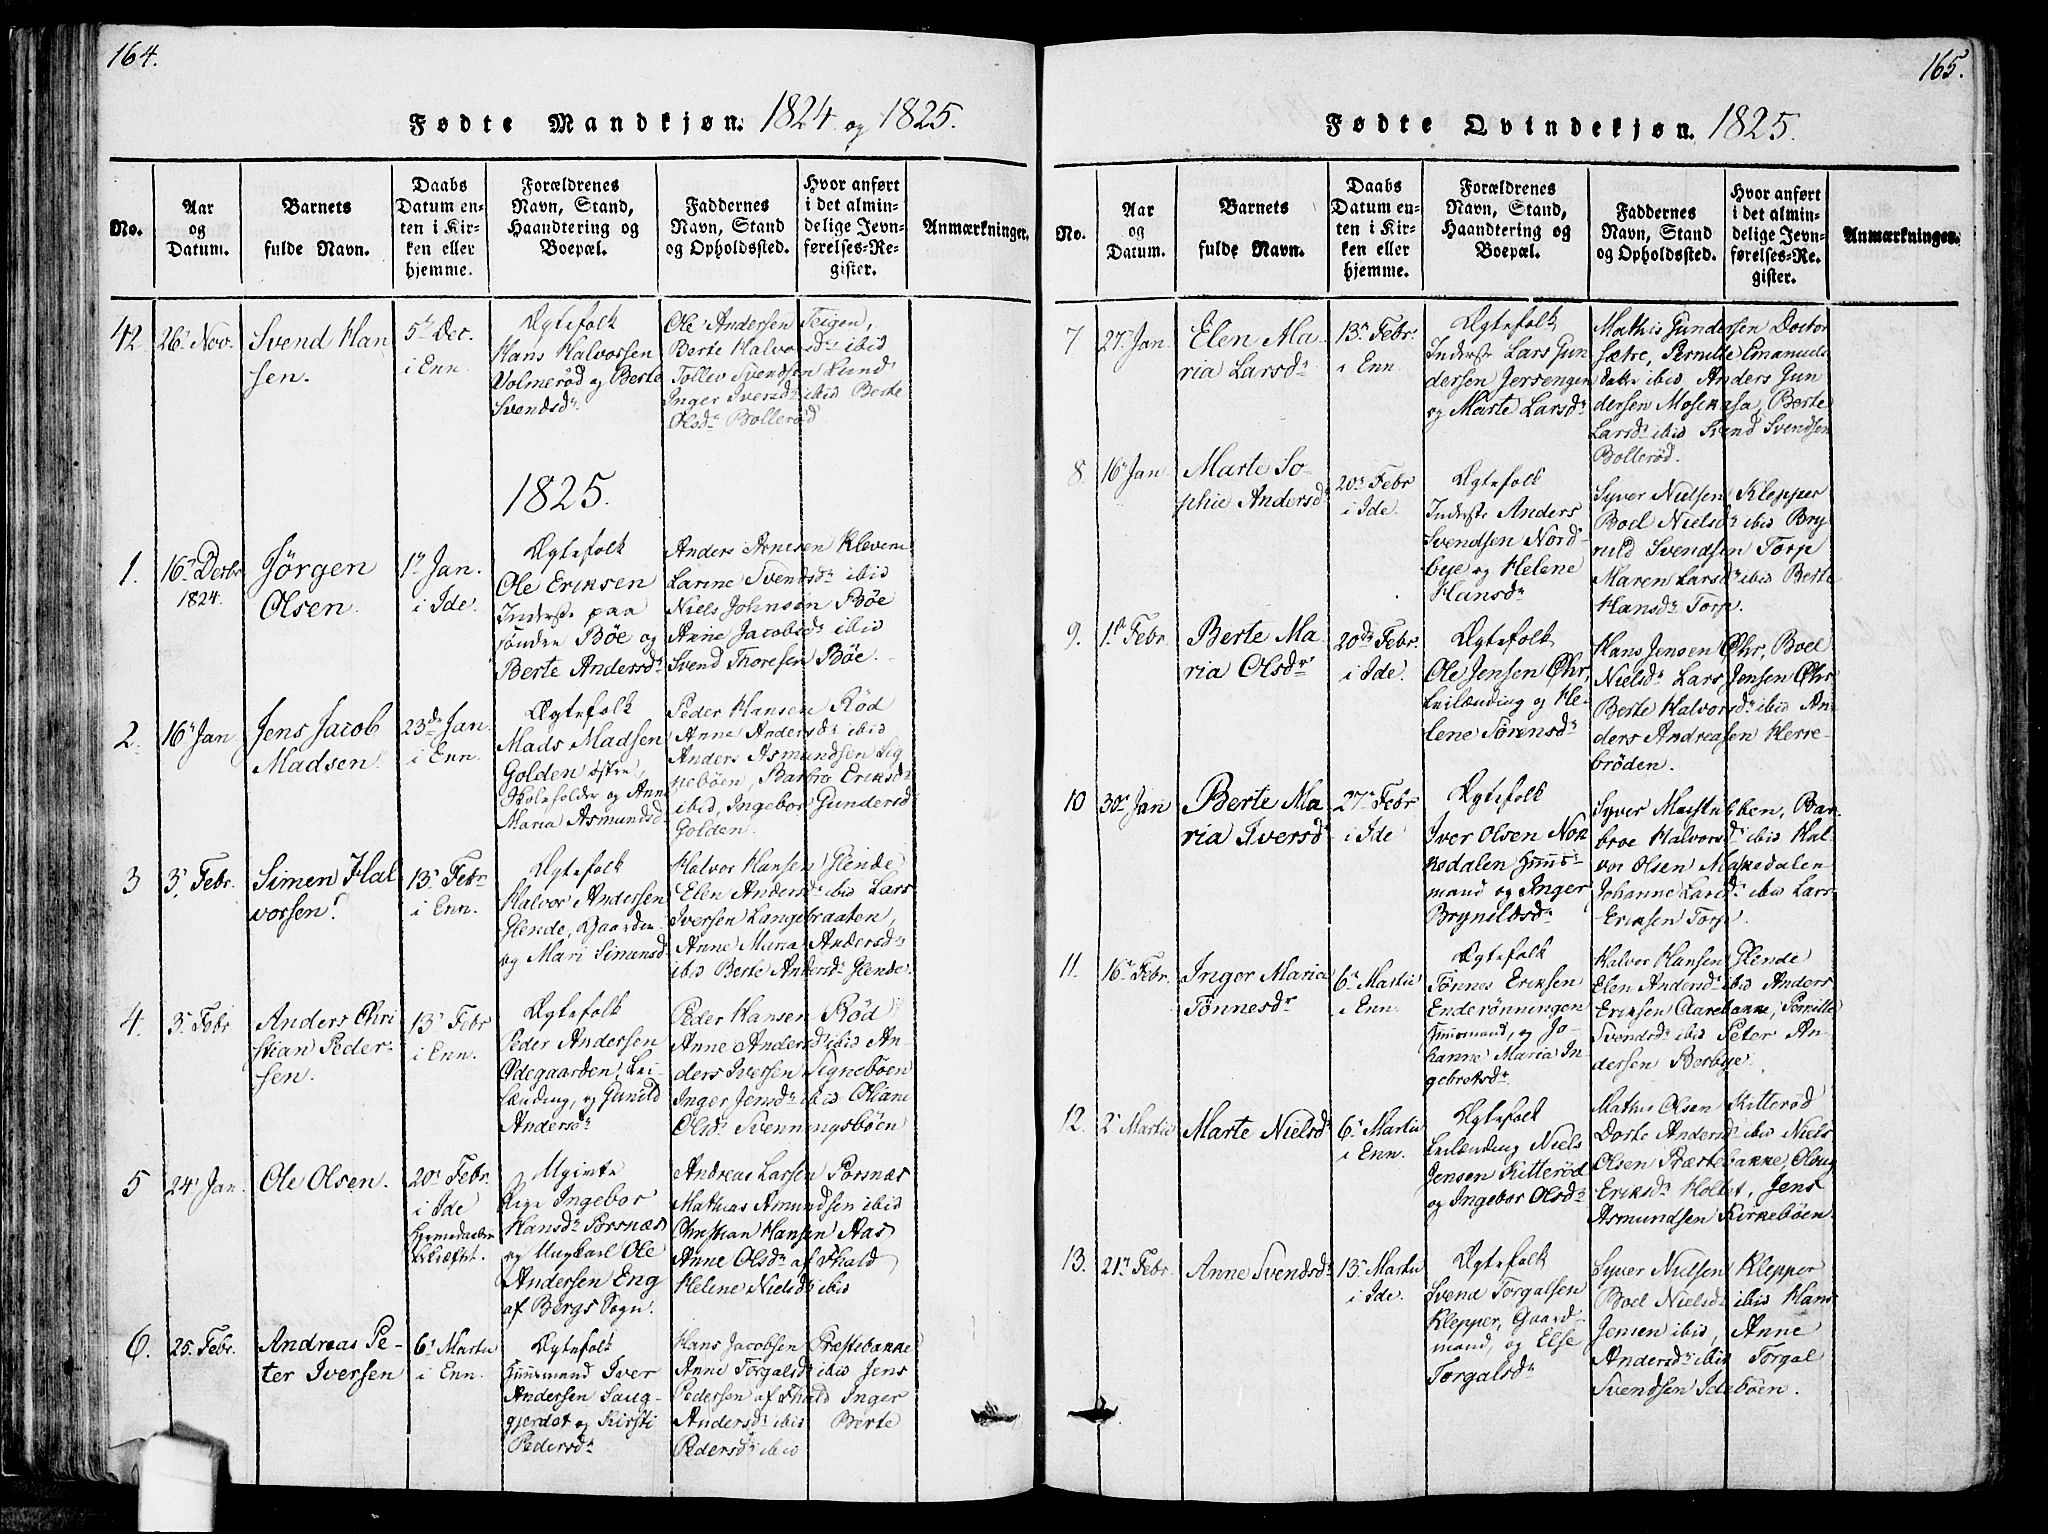 164.
Fødte Mandkjøn. 1824 og 1825.
No.
Aar
og
Datum.
Barnets
fulde Navn.
Daabs
Datum en-
ten i Kir-
ken eller
hjemme.
Forældrenes
Navn, Stand,
Haandtering og
Boepæl.
Faddernes
Navn, Stand
og Opholdssted.
Hvor anført
i det almin-
delige Jevn-
førelses-Re-
gister.
Anmærkninger.
42
26' Nov.
Svend Han
sen.
5t Dec.
i Enn.
Ægtefolk
Hans Halvorsen
Volmerød og Berte
Svendsdr
Ole Andersen Teigen,
Berte Halvorsdr ibid
Tollev Svendsen Lund
Inger Iversdr ibid Berte
Olsdr Bollerød
1825.
1.
16' Decbr
1824.
Jørgen
Olsen.
1' Jan.
i Ide.
Ægtefolk
Ole Eriksen
Inderste paa
søndre Bøe og
Berte Andersdr
Anders Arnesen Klevene
Larine Svendsdr ibid
Niels Johnson Bøe
Anne Jacobsdr ibid
Svend Thoresen Bøe.
2.
16' Jan
Jens Jacob
Madsen.
23de Jan.
i Enn.
Ægtefolk
Mads Madsen
Golden østre,
og Anne
Maria Asmundsd
Peder Hansen Rød
Anne Andersdr ibid
Anders Asmundsen Sig
nebøen, Barbro Eriksdr
ibid, Ingebor Gundersd
Golden.
3
3' Febr.
Simen Hal
vorsen.
13' Febr
i Enn.
Ægtefolk
Halvor Andersen
Glende, Gaarden
og Mari Simensd
Halvor Hansen Glende
Elen Andersdr ibid Lars
Iversen Langebraaten,
Anne Maria Andersdr
ibid Berte Andersdr Glende.
4.
3' Febr
Anders Chri
stian Peder-
sen.
13' Febr
i Enn.
Ægtefolk
Peder Andersen
Ødegaarden, Lei
lænding, og Gunild
Andersdr
Peder Hansen Rød
Anne Andersdr ibid An
ders Iversen Signebøen
Inger Jensdr ibid Oliane
Olsdr Svenningsbøen
5
24' Jan.
Ole Olsen.
20' Febr.
i Ide
Hjemmedaaben
bekræftet.
Ugivte
Pige Ingebor
Hansdr Sorsnæs
og Ungkarl Ole
Andersen Eng
af Bergs Sogn.
Andreas Larsen Sorsnæs
Mathias Amundsen ibid
Christian Hansen Aas
Anne Olsdr af Fhald
Helene Nielsdr ibid
6.
25. Febr.
Andreas Pe-
ter Iversen
6' Martii
i Enn.
Ægtefolk
Huusmand Iver
Andersen Saug-
gjerdet og Kirsti
Pedersdr
Hans Jacobsen Præstebakke
Anne Torgalsdr ibid Jens
Pedersen af Fhald Inger
Andersdr ibid Berte
Pedersdr ibid
165.
Fødte Qvindekjøn. 1825.
No.
Aar
og
Datum.
Barnets
fulde Navn.
Daabs
Datum en-
ten i Kir-
ken eller
hjemme.
Forældrenes
Navn, Stand,
Haandtering og
Boepæl.
Faddernes
Navn, Stand
og Opholdssted.
Hvor anført
i det almin-
delige Jevn-
førelses-Re-
gister.
Anmærkninger.
7
27' Jan.
Elen Ma-
ria Larsdr
13' Febr.
i Enn.
Ægtefolk
Inderste Lars Gun
dersen Jersengen
og Marte Larsdr
Mathis Gundersen Doctor
Sætre, Pernille Emanuels
datter ibid, Anders Gun
dersen Mosekasa, Berte
Larsdr ibid Svend Svendsen
Bollerød.
8
16' Jan
Marte So-
phie Andersdr
20' Febr
i Ide.
Ægtefolk
Inderste Anders
Svendsen Nord-
bye og Helene
Hansdr
Syver Nielsen Klepper
Boel Nielsdr ibid Bry
nild Svendsen Torp
Maren Larsdr ibid Berte
Hansdr Torp.
9.
1' Febr.
Berte Ma-
ria Olsdr
20de Febr.
i Ide.
Ægtefolk
Ole Jensen Øhr,
Leilænding og He-
lene Sørensdr
Hans Jensen Øhr, Boel
Nielsdr Lars Jensen Øhr
Berte Halvorsdr ibid An
ders Andreasen Herre-
brøden.
10
30' Jan
Berte Ma
ria Iversd
27' Febr
i Ide
Ægtefolk
Iver Olsen Nok
kedalen Huus-
mand og Inger
Brynildsdr
Syver Mastubben, Bar-
broe Halvorsdr ibid Hal
vor Olsen Makedalen
Johanne Larsdr ibid Lars
Eriksen Torp.
11.
16' Febr.
Inger Maria
Tønnesdr
6' Martii
i Enn.
Ægtefolk
Tønnes Eriksen
Enderønningen
Huusmand, og Jo-
hanne Maria In
gebretsdr
Halvor Hansen Glende
Elen Andersdr ibid Anders
Eriksen Aarebakke, Pernille
Svendsdr ibid Peter An-
dersen Berbye.
12.
2' Martii
Marte Nielsdr
6' Martii
i Enn.
Ægtefolk
Leilænding Niels
Jensen Kitterød
og Ingebor Olsdr
Mathis Olsen Kitterød
Dorte Andersdr ibid Niels
Olsen Præstebakke, Olaug
Eriksdr Holtet, Jens
Asmundsen Kirkebøen.
13.
21' Febr.
Anne Svendsdr
13' Martii
i Ide.
Ægtefolk
Svend Torgalsen
Klepper, Gaard-
mand, og Else
Torgalsdr
Syver Nielsen Klepper
Boel Nielsdr ibid Hans
Jensen ibid, Anne
Andersdr ibid Torgal
Svendsen Idebøen.